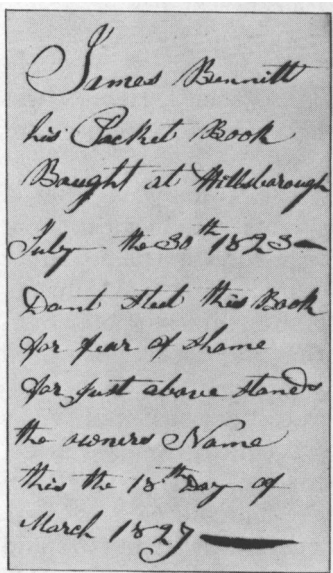 James Bennitt
his Pocket Book
Baught at Hillsborough
July the 30th 1823
Dont Steel this Book
for fear of Shame
for just above stands
the owners Name
this the 18th Day of
March 1827